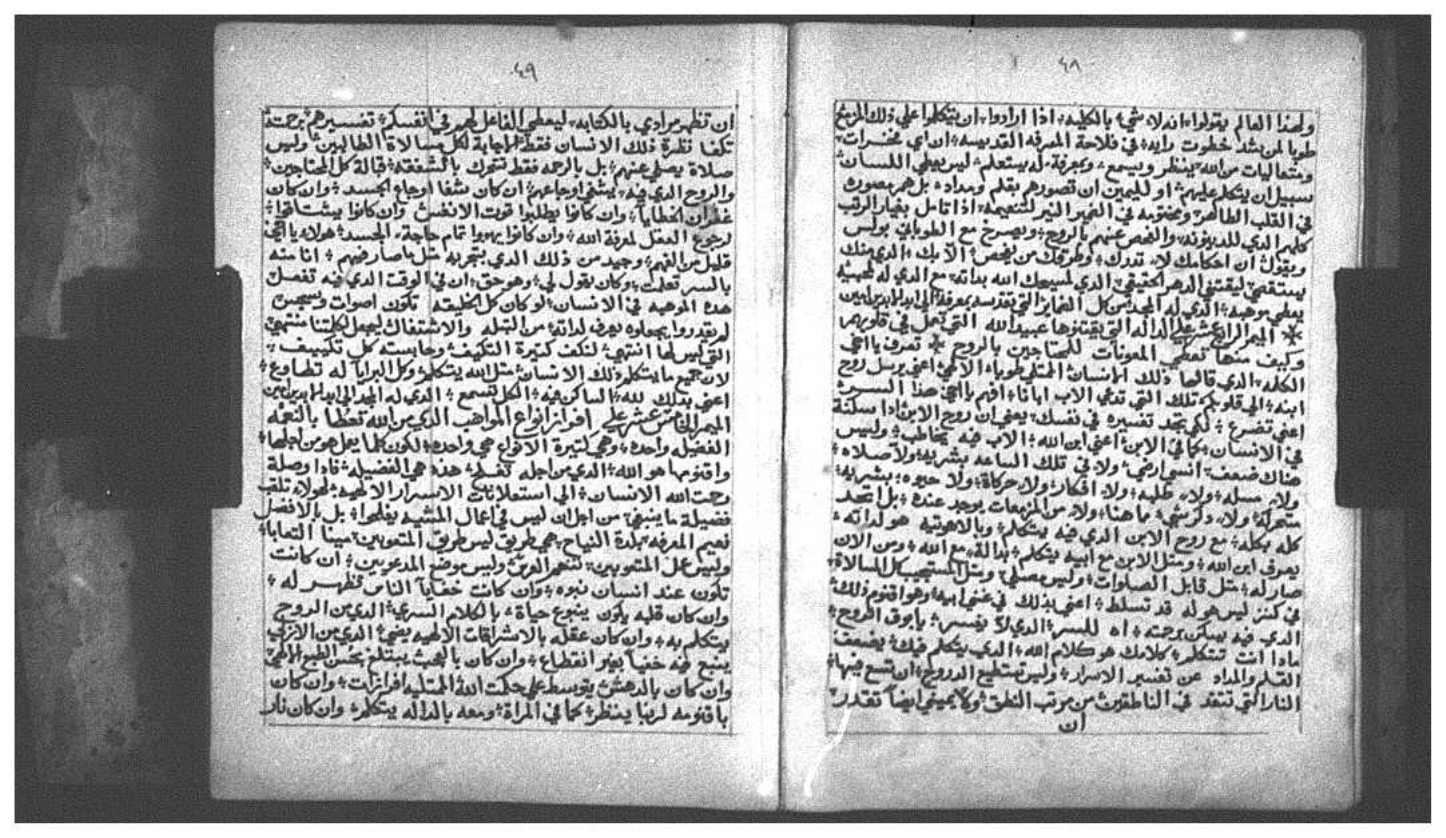 ٤٨
ولهذا العالم يقولوا انه لا شي بالكليه اذا ارادوا ان يتكلموا علي ذلك
طوبا لمن خطوت رايه في فلاحة المعرفه القديسه ان اي
من الله ينظر ويسمع وبمعرفة ليس يعطي اللسان
سبيل ان يتكلم عليهم او لليمين ان تصورهم بقلم ومداد بل هم مصوره
في القلب الطاهر ومختومه في الضمير النير لتنعيمه اذا تامل
الدي والفحص عنهم بالروح ويصرخ مع الطوباني بولس
ويقول ان احكامك لا تدرك وطرقك من يفحص الا بك الدي منك
ليقتني الحقيقي الدي لمسيحك الله بداته مع الدي له
يعطي موهبة الدي له المجد من كل الضماير التي بمعرفة الي ابد الابدين امين
الميمر الرابع عشر علي الداله التي يقتنوها عبيد الله التي تعمل في قلوبهم
وكيف منها تعطي المعونات للمحتاجين بالروح تعرف يا اخي
الكله الدي قالها ذلك الانسان الممتلي طوبا الالهي اعني يرسل روح
ابنه الي قلوبكم تلك التي تدعي الاب ابانا افهم يا اخي هذا السر
اعني تضرع لكي تجد تفسيره في نفسك يعني ان روح الابن ادا سكنة
في الانسان كما في الابن اعني ابن الله الاب فيه يخاطب وليس
هناك ضعف ارضي ولا في تلك الساعه بشريه ولا صلاه
ولا مسله ولا طلبه ولا افكار ولا حركاة ولا حيوه بشريه
متحركة ولا دكر شي ما هنا ولا من يوجد عنده بل اتحد
كله بكله مع روح الابن الدي فيه يتكلم وبالاهوتيه هو لداته
يعرف ابن الله ومتل الابن مع ابيه يتكلم بدالة مع الله ومن الان
صار له متل قابل الصلوات وليس مصلي ومتل المستجيب كل المسالاة
في كنز ليس هو له قد تسلط اعني بدلك في غني ابيه وهو اقنوم ذلك
الدي فيه يسكن برحمته اه للسر الدي لا يفسر يا بوق الروح
مادا انت تتكلم كلامك هو كلام الله الدي يتكلم فيك يضعف
القلم والمداد عن تفسير الاسرار وليس تستطيع الدروج ان تسع فيها
النار التي تتقد في الناطقين من مركب النطق ولا يميني ايضا تقدر
ان
٤٩
ان تظهر مرادي بالكتابه ليعطي الفاعل لهم في انفسكم تفسيرهم برحمته
تكفا نظرة ذلك الانسان فقط لاجابة لكل مسالاة الطالبين وليس
صلاة يصلي عنهم بل بالرحمه فقط تتحرك بالشفقه قبالة كل المحتاجين
والروح الدي فيه يشفي اوجاعهم ان كان شفا اوجاع الجسد وان كان
غفران الخطايا وان كانوا يطلبوا قوت الانفس وان كانوا يشتاقوا
لرجوع العقل لمعرفة الله وان كانوا تمام حاجة الجسد هولاء يا اخي
قليل من الفهم وجيد من ذلك الدي بتجربه متل صار فيهم انا منه
بالسر تعلمت وكان يقول لي وهو حق ان في الوقت الدي فيه تفصل
هده الموهبه في الانسان لو كان كل الخليقه تكون اصوات
لم يقدروا يجعلوه يعرف لداته من التبله والاشتغال ليجعل لكلتنا منتهي
التي ليس لها انتهي لنكف كتيرة التكيف وحابسته كل تكييف
لان جميع ما يتكلم ذلك الانسان متل الله يتكلم وكل البرايا له تطاوع
اعني بدلك لله الساكن فيه الكل تسمع الدي له المجد الي ابد الابدين امين
الميمر الخامس عشر علي افراز انواع المواهب الدي من الله تعطا بالنعمه
الفضيله واحده وهي كتيرة الانواع هي واحده لكون كلما يعمل هو من اجلها
واقنومها هو الله الدي من اجله تفلح هده هي الفضيله فادا وصلة
رحمت الله الانسان الي استعلانات الاسرار الالهيه لهولاء تلف
فضيلة ما ينبغي من اجل ان ليس في اعمال المشيه يفلحوا بل بالافضل
نعيم المعرفه بلدة النياح هي طريق ليس طريق المتعوبين مينا التعابا
وليس عمل المتعوبين تنعم العرس وليس موضع المدعوبين ان كانت
تكون عند انسان نبوه وان كانت خفايا الناس تظهر له
وان كان قلبه يكون ينبوع حياة بالكلام السري الدي من الروح
يتكلم به وان كان عقله بالاشراقات الالهيه يضي الدي من الازلي
ينبع فيه خفيا بغير انقطاع وان كان بالبحث يبتلع بحسن الطبع الالهي
وان كان بالدهش يتوسط علي حكمت الله الممتليه افرازات وان كان
باقنومه لربنا ينظر كما في المراة ومعه بالداله يتكلم وان كان نار